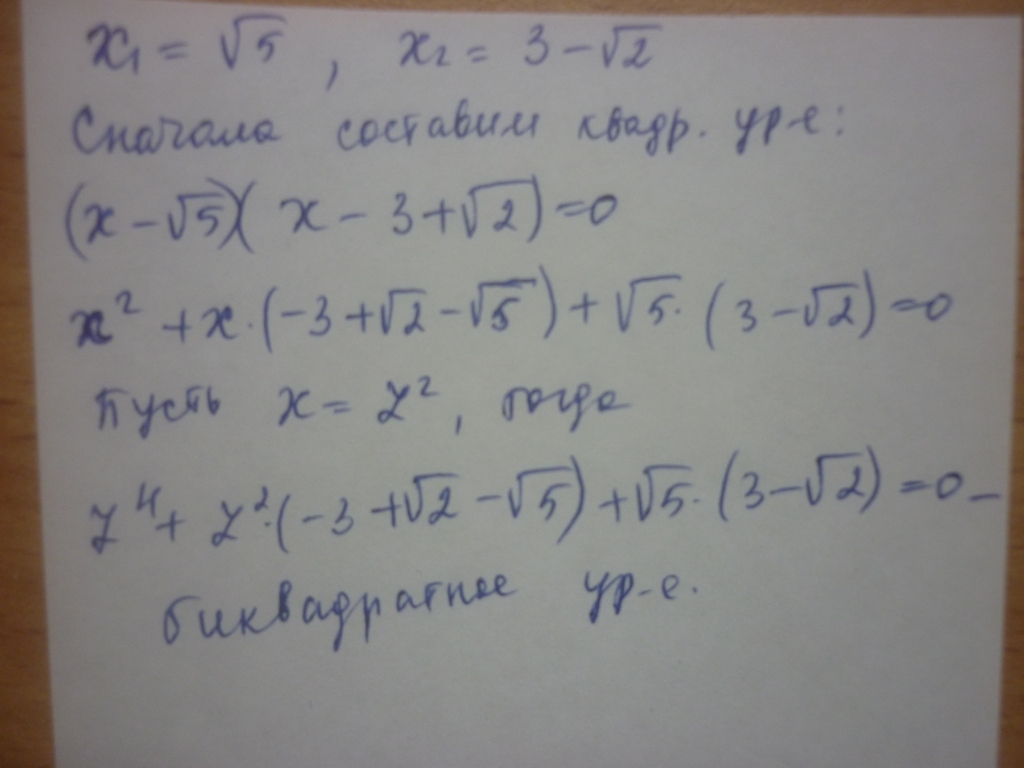 x₁ = √5 , x₂ = 3 − √2
Сначала составим квадр. ур-е:
(x − √5)(x − 3 + √2) = 0
x² + x · (−3 + √2 − √5) + √5 · (3 − √2) = 0
Пусть x = z², тогда
z⁴ + z² · (−3 + √2 − √5) + √5 · (3 − √2) = 0 –
биквадратное ур-е.